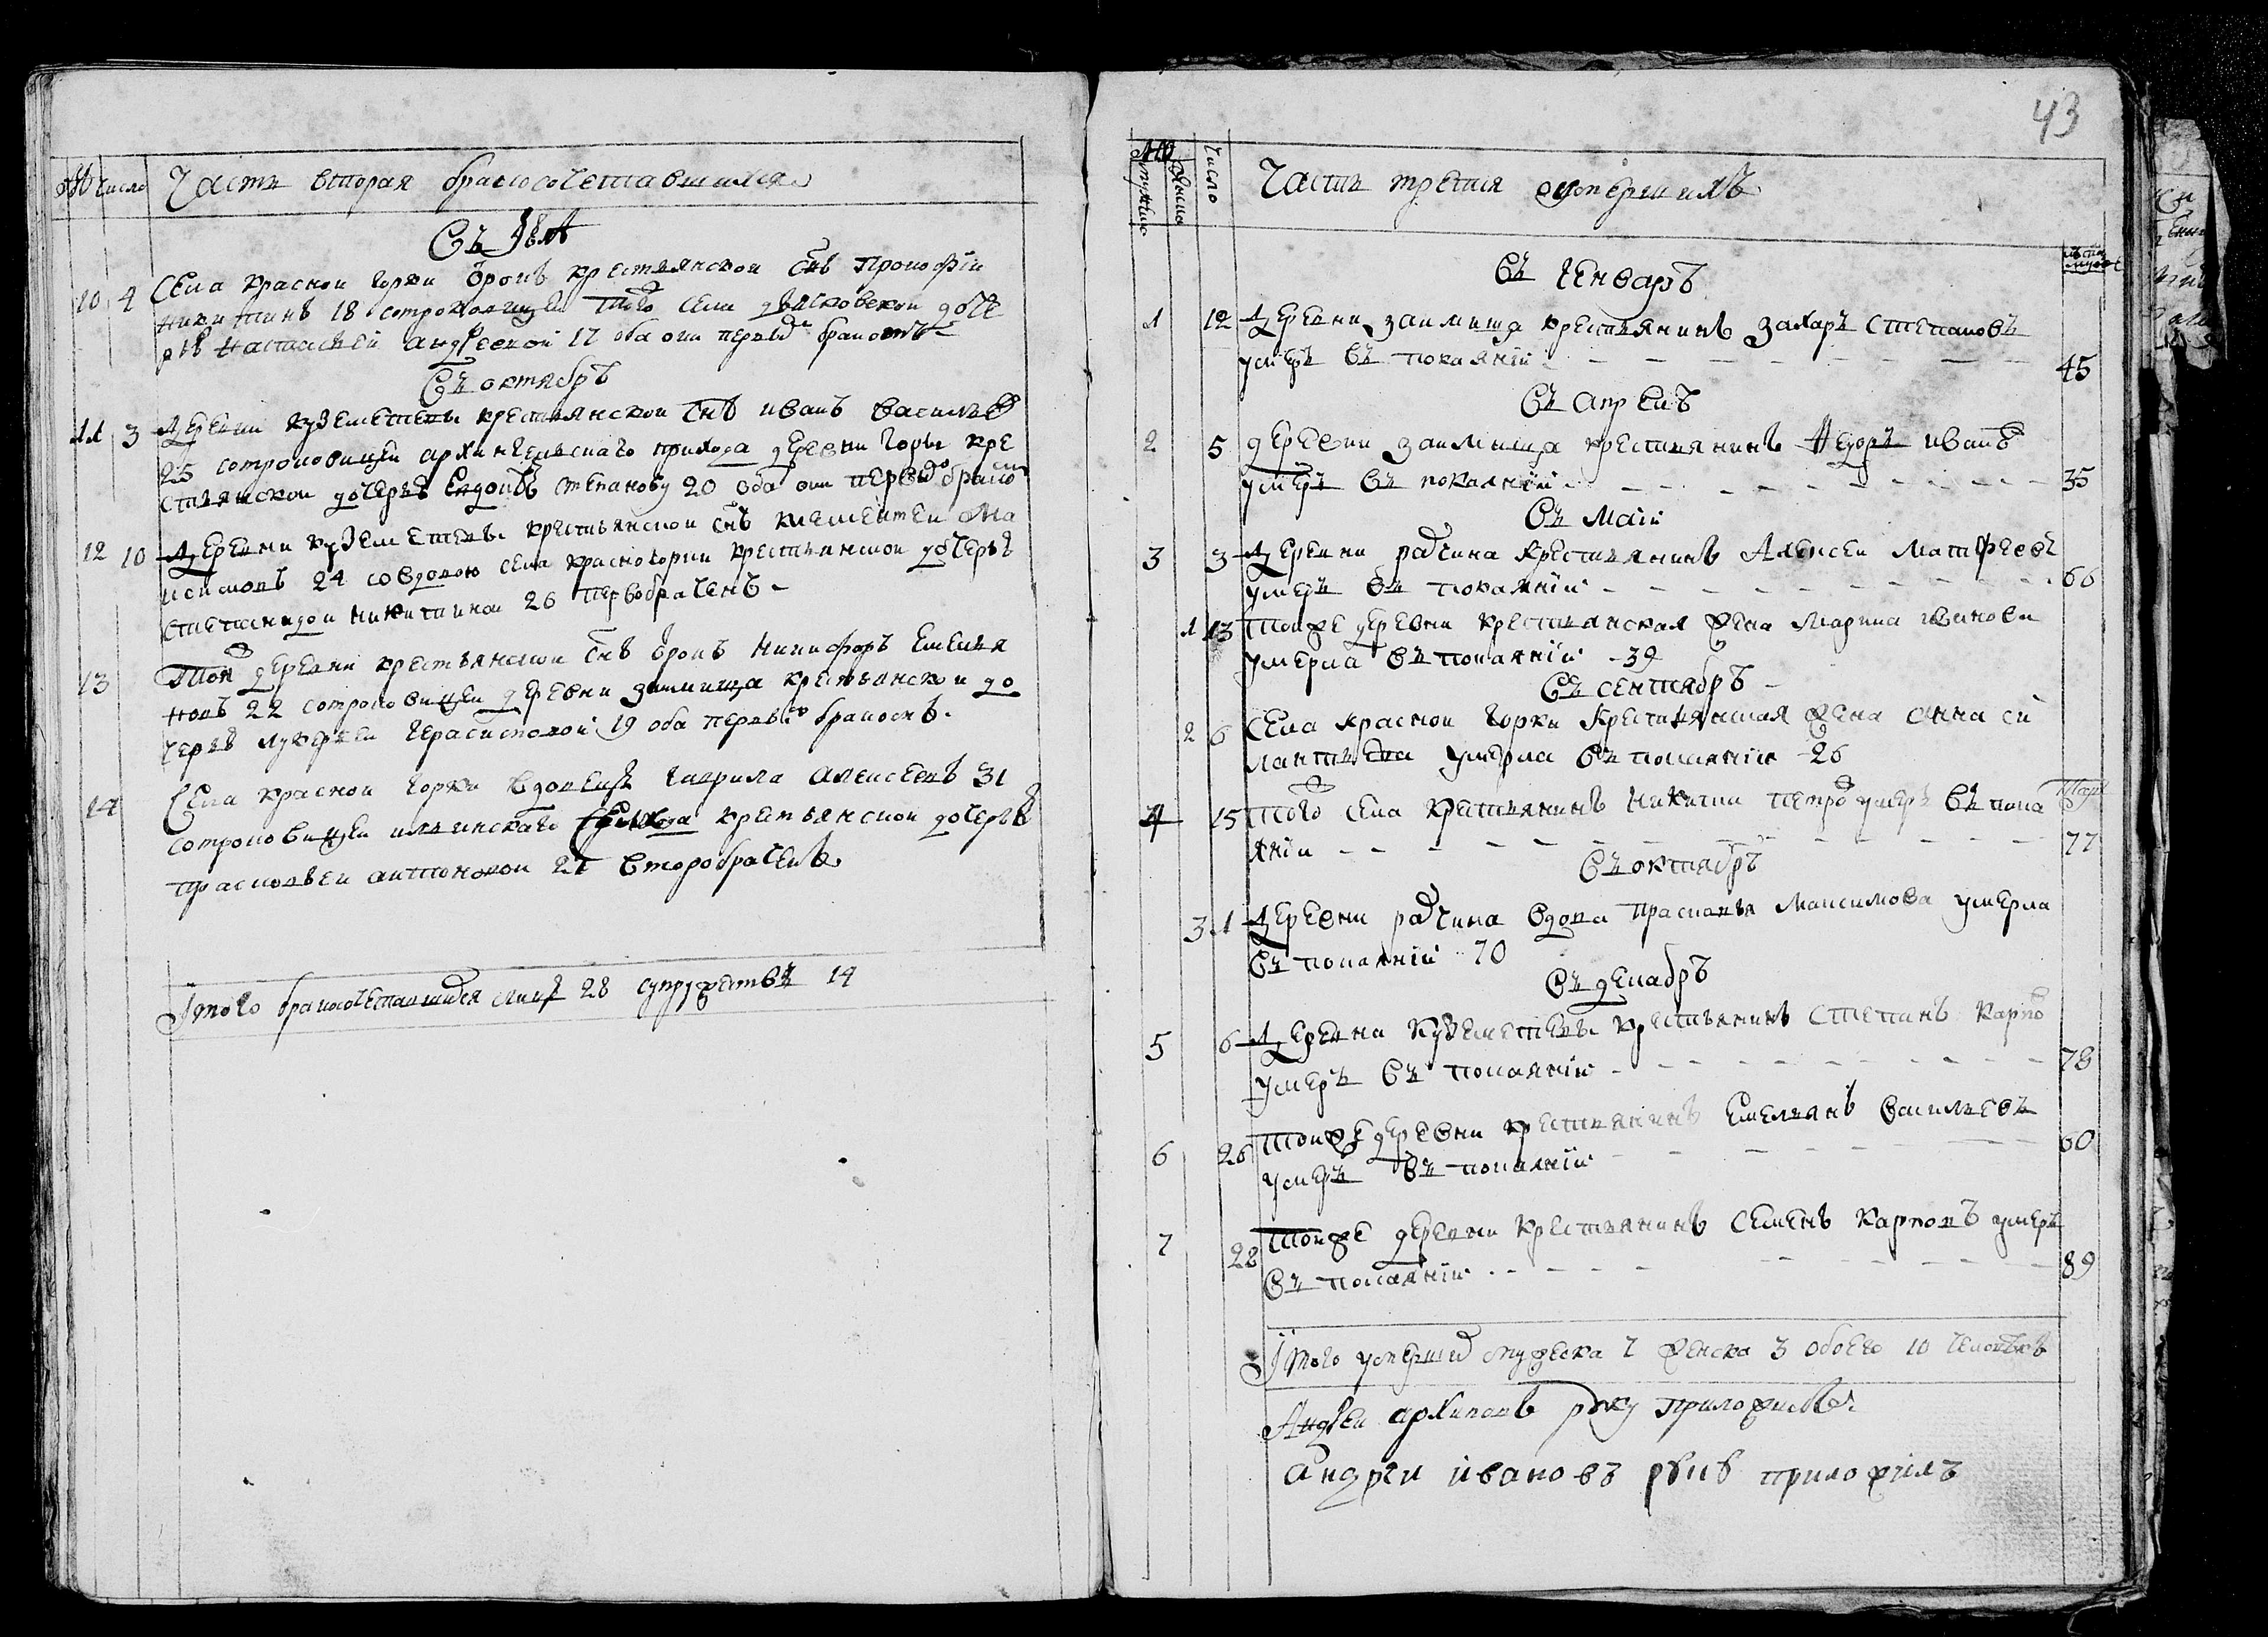 № число Часть вторая бракосочетавшихся
въ
10 4 Села красной горки крестьянской снъ Прокофіи
никитинъ 18 того села доче
рью настасьей андреевой 17 оба они первымъ бракомъ
въ октябрѣ
11 3 Деревни крестьянской снъ иванъ василье
25 архангельскаго прихода деревни горы кре
стьянской дочерью степановой 20 оба они
12 10 Деревни крестьянской снъ климентей ма
24 со вдовою села красногорки крестьянской дочерью
степанидой никитиной 26 первобраченъ
13 той деревни крестьянской снъ никифоръ емелья
новъ 22 деревни займища крестьянской до
черью лукерьей герасимовой 19 оба первымъ бракомъ
14 Села красной горки вдовецъ гаврила алексеевъ 31
ильинскаго прихода крестьянской дочерью
прасковьей антоновой 21 второбраченъ
Итого бракосочетавшихся лицъ 28 супружествъ 14
43
№ мужско женско число Часть третия оумершихъ
въ генварѣ
1 12 Деревни займища крестьянинъ захаръ степановъ
умеръ въ покаяніи 45
въ апрелѣ
2 5 деревни займища крестьянинъ Федоръ иванов
умеръ въ покаяніи 35
въ маіи
3 3 Деревни радчина крестьянинъ Алексей Матфеевъ
умеръ въ покаяніи 66
1 13 тойже деревни крестьянская жена марина иванова
умерла въ покаяніи 39
въ сентябрѣ
2 6 Села красной горки крестьянская жена анна си
лантьева умерла въ покаяніи 26
4 15 того села крестьянинъ никита петров умеръ въ пока
яніи 77
въ октябрѣ
3 1 Деревни радчина вдова прасковья максимова умерла
въ покаяніи 70
въ декабрѣ
5 6 Деревни крестьянинъ степанъ карпо
умеръ въ покаяніи 78
6 26 тойже деревни крестьянинъ емельянъ васильевъ
умеръ въ покаяніи 60
7 28 тойже деревни крестьянинъ семенъ карповъ умеръ
въ покаяніи 89
Итого умерших мужеска 7 женска 3 обоего 10 человѣкъ
Андрей архиповъ руку приложилъ
андреи ивановъ руку приложилъ